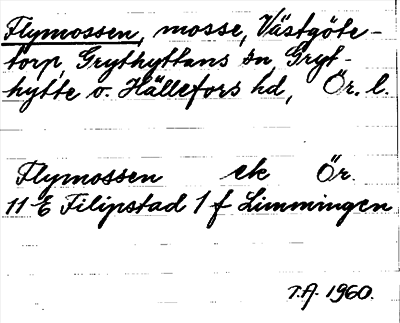 Flymossen, mosse, Västgöte-
torp, Grythyttans sn, Gryt-
hytte o. Hällefors hd, Ör. l.
Flymossen ek Ör.
11 E Filipstad 1 f Limmingen
T.A. 1960.